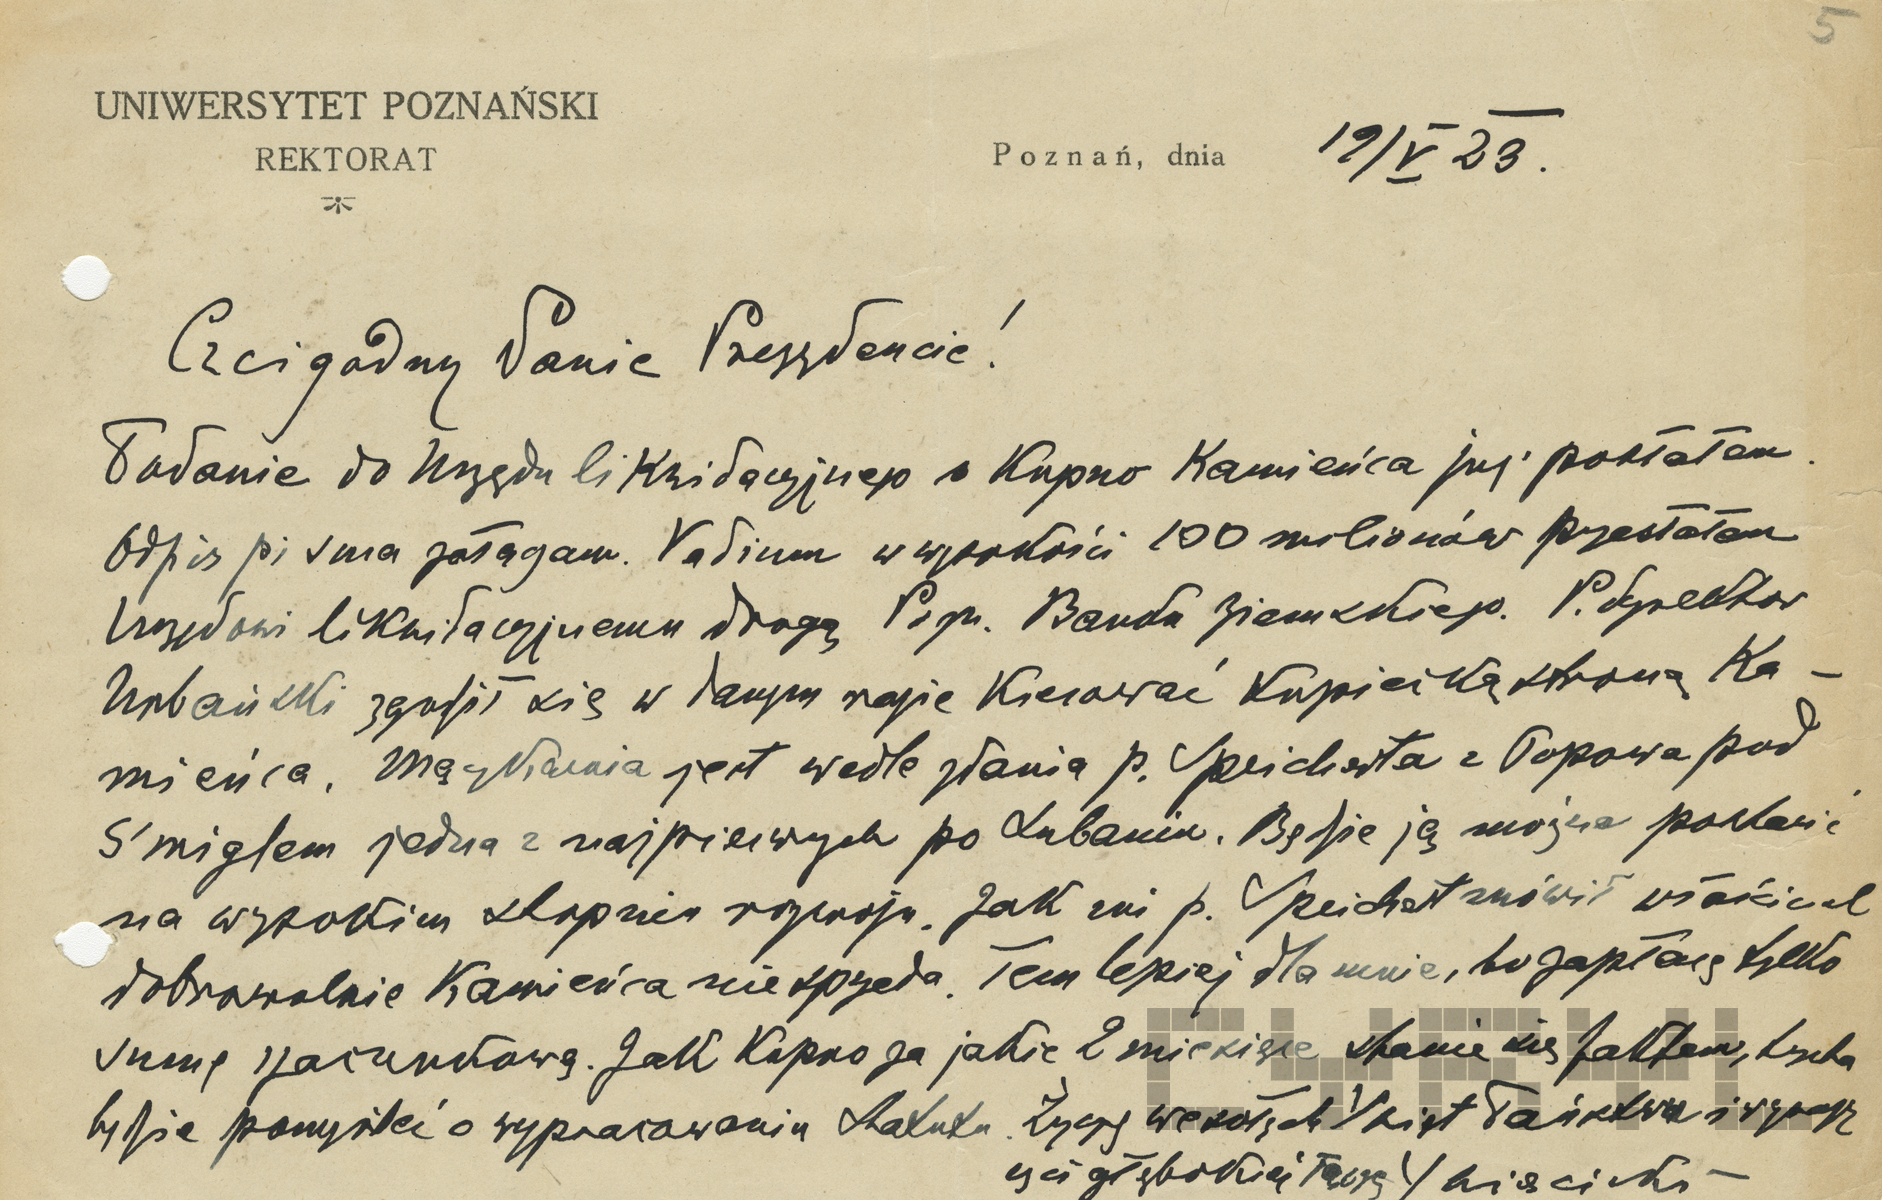 5
UNIWERSYTET POZNAŃSKI
REKTORAT
Poznań, dnia 19/V 23.
Czcigodny Panie Prezydencie!
Podanie do Urzędu likwidacyjnego o kupno Kamieńca już posłałem.
Odpis pisma załączam. Vadium w wysokości 100 milionów przesłałem
Urzędowi likwidacyjnemu drogą Pozn. Banku Ziemskiego. P. dyrektor
Urbański zgodził się w danym razie kierować kupiecką stroną Ka-
mieńca. Mączkarnia jest wedle zdania p. Speicherta z Popowa pod
Śmiglem jedna z najpierwszych po Luboniu. Będzie ją można postawić
na wysokim stopniu rozwoju. Jak mi p. Speichert mówił właściciel
dobrowolnie Kamieńca nie sprzeda. Tem lepiej dla mnie, bo zapłacę tylko
sumę szacunkową. Jak kupno za jakie 2 miesiące stanie się faktem, trzeba
będzie pomyśleć o wypracowaniu statutu. Życzę wesołych Świąt Państwu i wyrazy
czci głębokiej łączę Święcicki
CYRYL